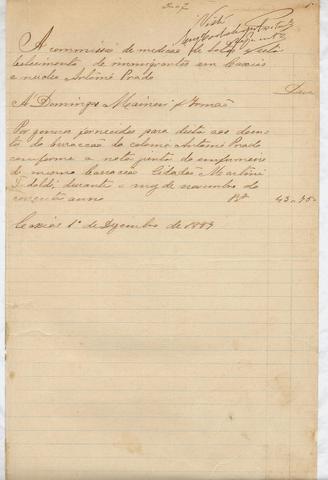 Visto
A commissão de medição de lotes e esta
belecimento de immigrantes em Caxias
e nucleo Antonio Prado
Deve
A Domingos Maineri & Irmão
Por generos fornecidos para dieta aos doen
tes do barracão da colonia Antonio Prado
conforme a nota junta do enfermeiro
do mesmo barracão Cidadão Martini
durante o mez de novembro do
corrente anno Rs
Caxias 1º de Dezembro de 1889